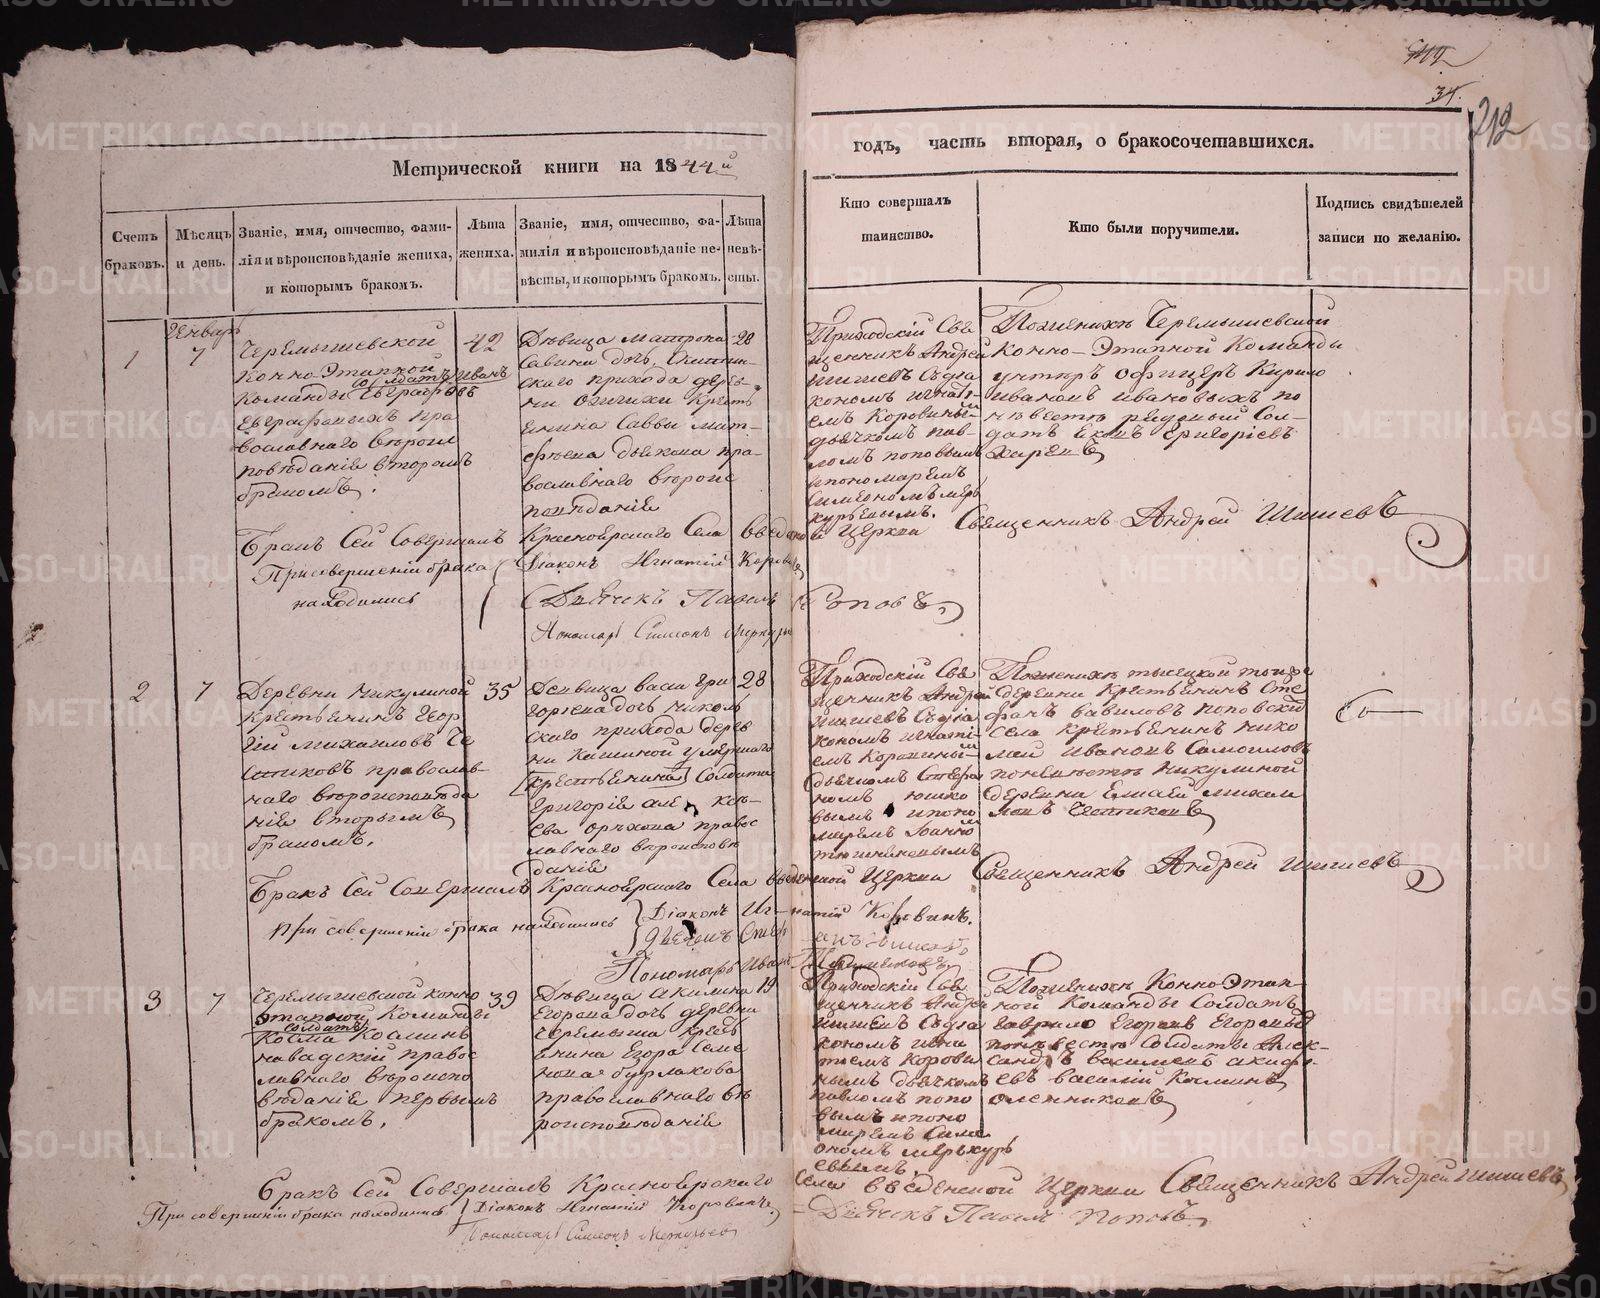 Метрической книги на 1844й
годъ, часть вторая, о бракосочетавшихся.
34.
212
Счетъ
браковъ.
Мѣсяцъ
и день.
Званіе, имя, отчество, фами-
лія и вѣроисповѣданіе жениха,
и которымъ бракомъ.
Лѣта
жениха.
Званіе, имя, отчество, фа-
милія и вѣроисповѣданіе не-
вѣсты, и которымъ бракомъ.
Лѣта
невѣ-
сты.
Кто совершалъ
таинство.
Кто были поручители.
Подпись свидѣтелей
записи по желанію.
1
Генварь
7
Черемышевской
Конно-Этапной
солдатъ Иванъ
Команды Евграфовъ
православнаго вѣроис
повѣданіе вторымъ
бракомъ.
42
Дѣвица Матрона
Савина дочь
скаго прихода дерев-
ни
Савы Мат-
фѣева дьякона пра-
вославнаго вѣроис
повѣданіе
28
Приходскій Свя
щенникъ Андрей
Шишевъ Съ діа
кономъ Игнаті-
емъ Коровины-
дьячкомъ Пав-
ломъ Поповымъ
и пономаремъ
Симеономъ Мер
курьевымъ.
По женихѣ Черемышевской
Конно-Этапной Команды
унтеръ офицеръ Кирило
Ивановъ Ивановыхъ по
невѣстѣ рядовый Сол-
датъ Григоріевъ
Бракъ Сей Совершалъ Красноярскаго Села Введенской Церкви Священникъ Андрей Шишевъ
При совершеніи брака
находились
Діаконъ Игнатій Коровинъ
Дьячекъ Павелъ Поповъ
Пономарь Симеонъ Меркурьевъ
2
7
Деревни Никулиной
крестьянинъ Геор
гій Михаиловъ Че
православ-
наго вѣроисповѣда
ніе вторымъ
бракомъ.
35
Дѣвица Васа Гри
горьева дочь Николь
скаго прихода дерев
ни Кашиной умершаго
[крестьянина] Солдата
Григорія Алек
сѣева Орѣхова правос
лавнаго вѣроисповѣ
даніе
28
Приходскій Свя
щенникъ Андрей
Шишевъ Съ діа
кономъ Игнаті-
емъ Коровины-
дьячкомъ Степа
номъ Юшко
вымъ и поно
маремъ Іоанно
По женихѣ
деревни Крестьянинъ Сте
фанъ Вавиловъ Поповскій
села крестьянинъ Нико
лай Ивановъ Самойловъ
по невѣстѣ Никулиной
деревни Елисей Михаи
ловъ
Бракъ Сей Совершалъ Красноярскаго Села Введенской Церкви Священникъ Андрей Шишевъ
При совершеніи брака находились
Діаконъ Игнатій Коровинъ.
Дьячекъ Степанъ Юшковъ
Пономарь Иванъ
3
7
Черемышевской Конно
Этапной Команды
солдатъ
Косма Косминъ
Навадскій правос
лавнаго вѣроиспо
вѣданіе первымъ
бракомъ.
39
Дѣвица Акилина
Егорова дочь деревни
Черемыша крест
янина Егора Семе
нова Бурлакова
православнаго вѣ
роисповѣданіе
19
Приходскій Свя
щенникъ Андрей
Шишевъ Съ діа
кономъ Игна
тіемъ Корови
нымъ дьячкомъ
Павломъ Попо
вымъ и поно
маремъ Симе
ономъ Меркурь
евымъ.
По женихѣ Конно-Этап-
ной Команды Солдатъ
Гаврило Егоровъ Егоровъ
по невѣстѣ Солдаты Алек-
сандръ Василіевъ
Василій Косминъ
Оленниковъ
Бракъ Сей Совершалъ Красноярскаго Села Введенской Церкви Священникъ Андрей Шишевъ
При совершеніи брака находились
Діаконъ Игнатій Коровинъ
Дьячекъ Павелъ Поповъ
Пономарь Симеонъ Меркурьевъ
METRIKI.GASO-URAL.RU